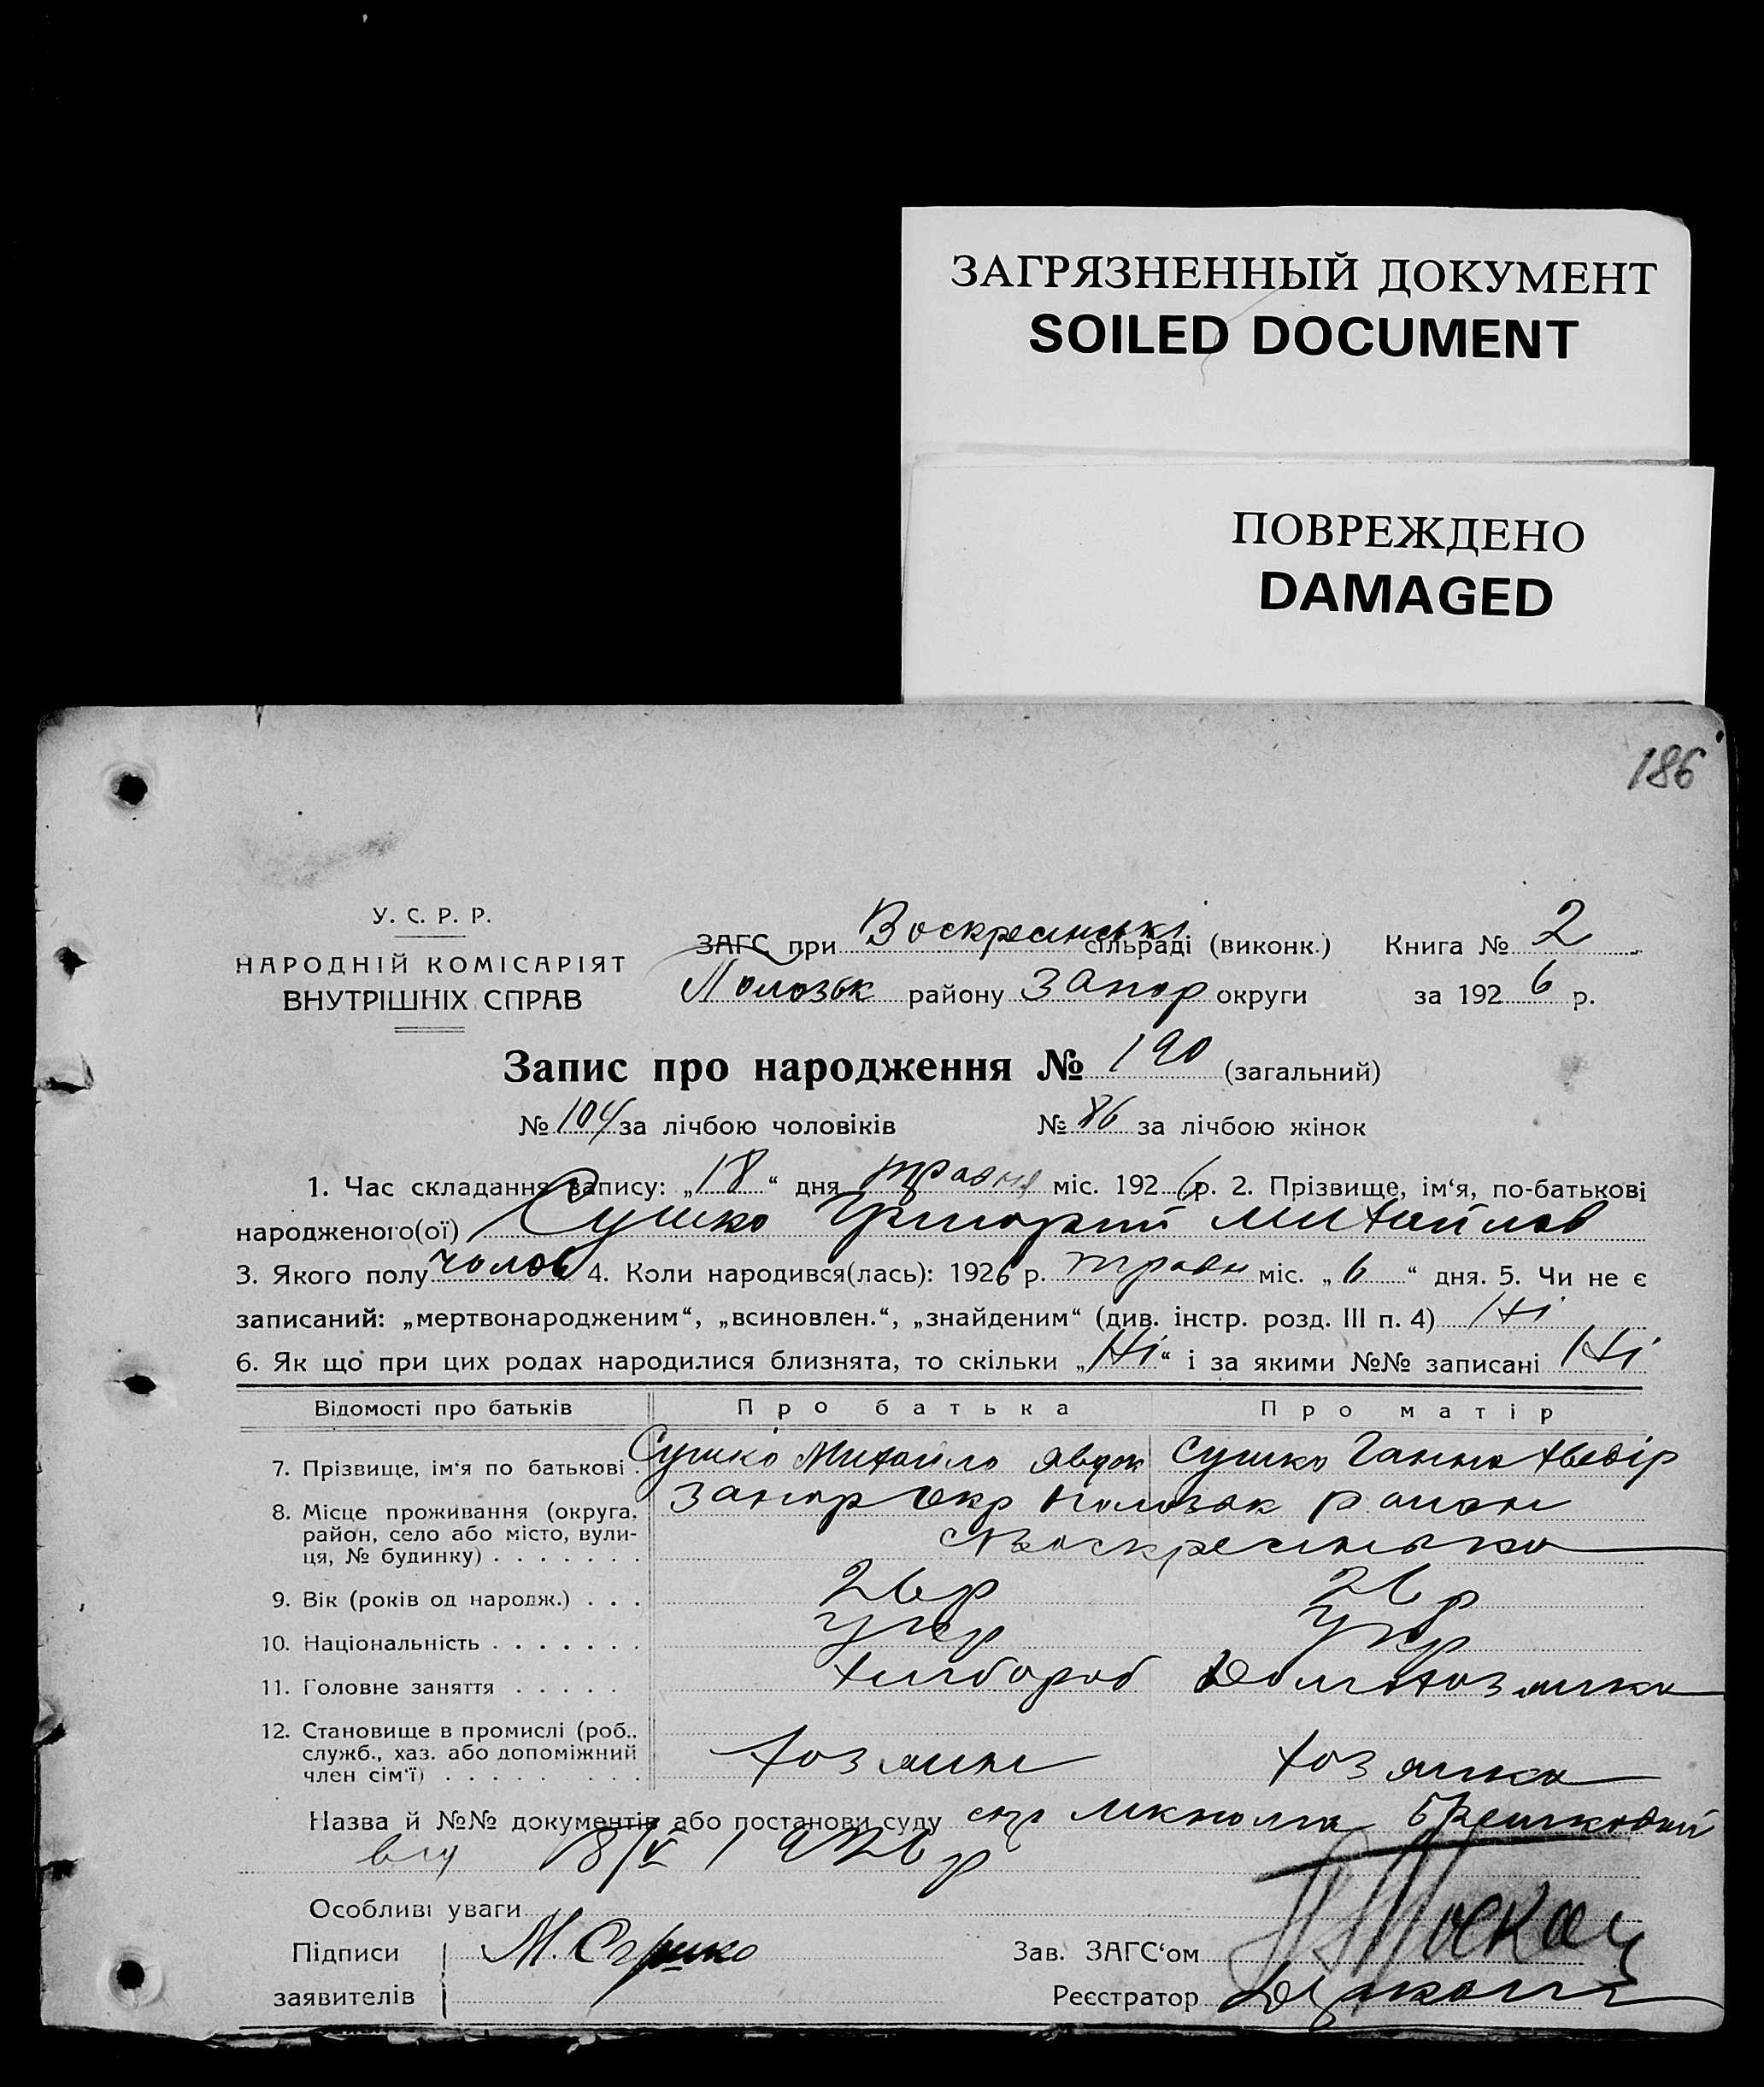 ЗАГРЯЗНЕННЫЙ ДОКУМЕНТ
SOILED DOCUMENT
ПОВРЕЖДЕНО
DAMAGED
186
У. С. Р. Р.
НАРОДНІЙ КОМІСАРІЯТ
ВНУТРІШНІХ СПРАВ
ЗАГС при Воскресинські сільраді (виконк.) Книга № 2
Пологзьк району Запор округи за 1926 р.
Запис про народження № 190 (загальний)
№ 104 за лічбою чоловіків № 86 за лічбою жінок
1. Час складання запису: „18“ дня травня міс. 1926 р. 2. Прізвище, ім‘я, по-батькові
народженого(ої) Сушко Григорий Михайлов
3. Якого полу чолов 4. Коли народився(лась): 1926 р. травн міс. „6“ дня. 5. Чи не є
записаний: „мертвонародженим“, „всиновлен.“, „знайденим“ (див. інстр. розд. III п. 4) Ні
6. Як що при цих родах народилися близнята, то скільки „Ні“ і за якими №№ записані Ні
Відомості про батьків Про батька Про матір
7. Прізвище, ім‘я по батькові Сушко Михайло Явдок Сушко Ганна Хведір
8. Місце проживання (округа, Запор окр район
район, село або місто, вули-
ця, № будинку) с Воскресинка
9. Вік (років од народж.) 26 р 26 р
10. Національність Укр Укр
11. Головне заняття Хлібороб Домохозяйка
12. Становище в промислі (роб.,
служб., хаз. або допоміжний Хозяин Хозяйка
член сім‘ї)
Назва й №№ документів або постанови суду
18/V 1926 р
Особливі уваги
Підписи М. Сушко Зав. ЗАГС‘ом
заявителів Реєстратор